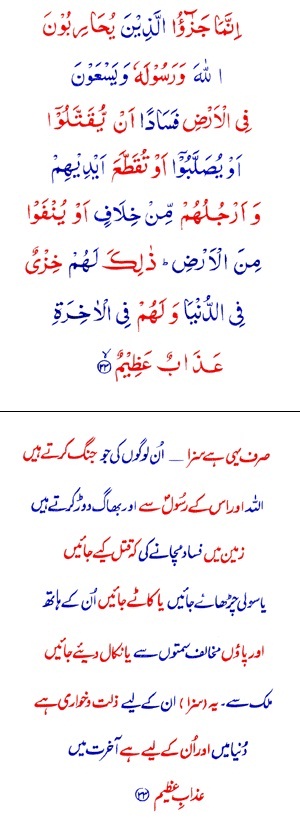 اِنَّمَا جَزٰٓؤُا الَّذِيْنَ يُحَارِبُوْنَ
اللّٰهَ وَرَسُوْلَهٗ وَيَسْعَوْنَ
فِى الْاَرْضِ فَسَادًا اَنْ يُّقَتَّلُوْٓا
اَوْ يُصَلَّبُوْٓا اَوْ تُقَطَّعَ اَيْدِيْهِمْ
وَ اَرْجُلُهُمْ مِّنْ خِلَافٍ اَوْ يُنْفَوْا
مِنَ الْاَرْضِ ؕ ذٰلِكَ لَهُمْ خِزْىٌ
فِى الدُّنْيَا وَ لَهُمْ فِى الْاٰخِرَةِ
عَذَابٌ عَظِيْمٌ ۙ﴿۳۳﴾
صرف یہی ہے سزا _ اُن لوگوں کی جو جنگ کرتے ہیں
اللہ اور اس کے رسُولؐ سے اور بھاگ دوڑ کرتے ہیں
زمین میں فساد مچانے کی کہ قتل کیے جائیں
یا سولی چڑھائے جائیں یا کاٹے جائیں اُن کے ہاتھ
اور پاؤں مخالف سمتوں سے یا نکال دیئے جائیں
ملک سے۔ یہ (سزا) ان کے لیے ذلت و خواری ہے
دُنیا میں اور اُن کے لیے ہے آخرت میں
عذابِ عظیم ﴿۳۳﴾